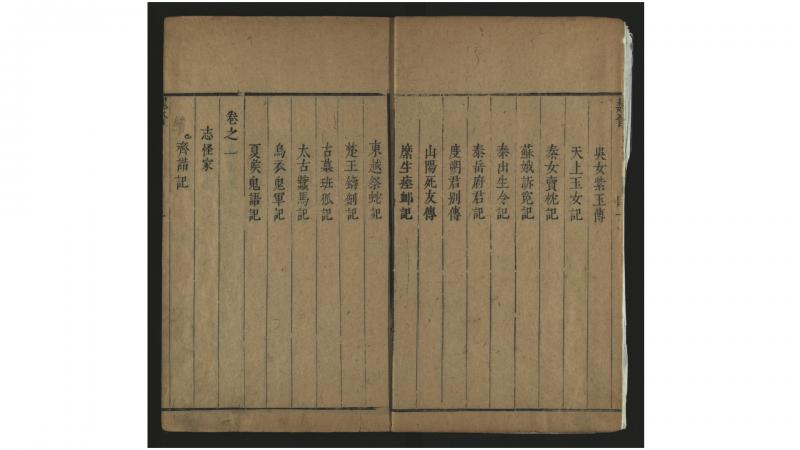 吳女紫玉傳
天上玉女記
秦女賣枕記
蘇娥訴冤記
泰岳府君記
度朔君別傳
山陽死友傳
糜生瘞卹記
東越祭蛇記
楚王鑄劍記
古墓斑狐記
太古蠶馬記
烏衣鬼軍記
夏侯鬼語記
卷之一
志怪家
齊諧記